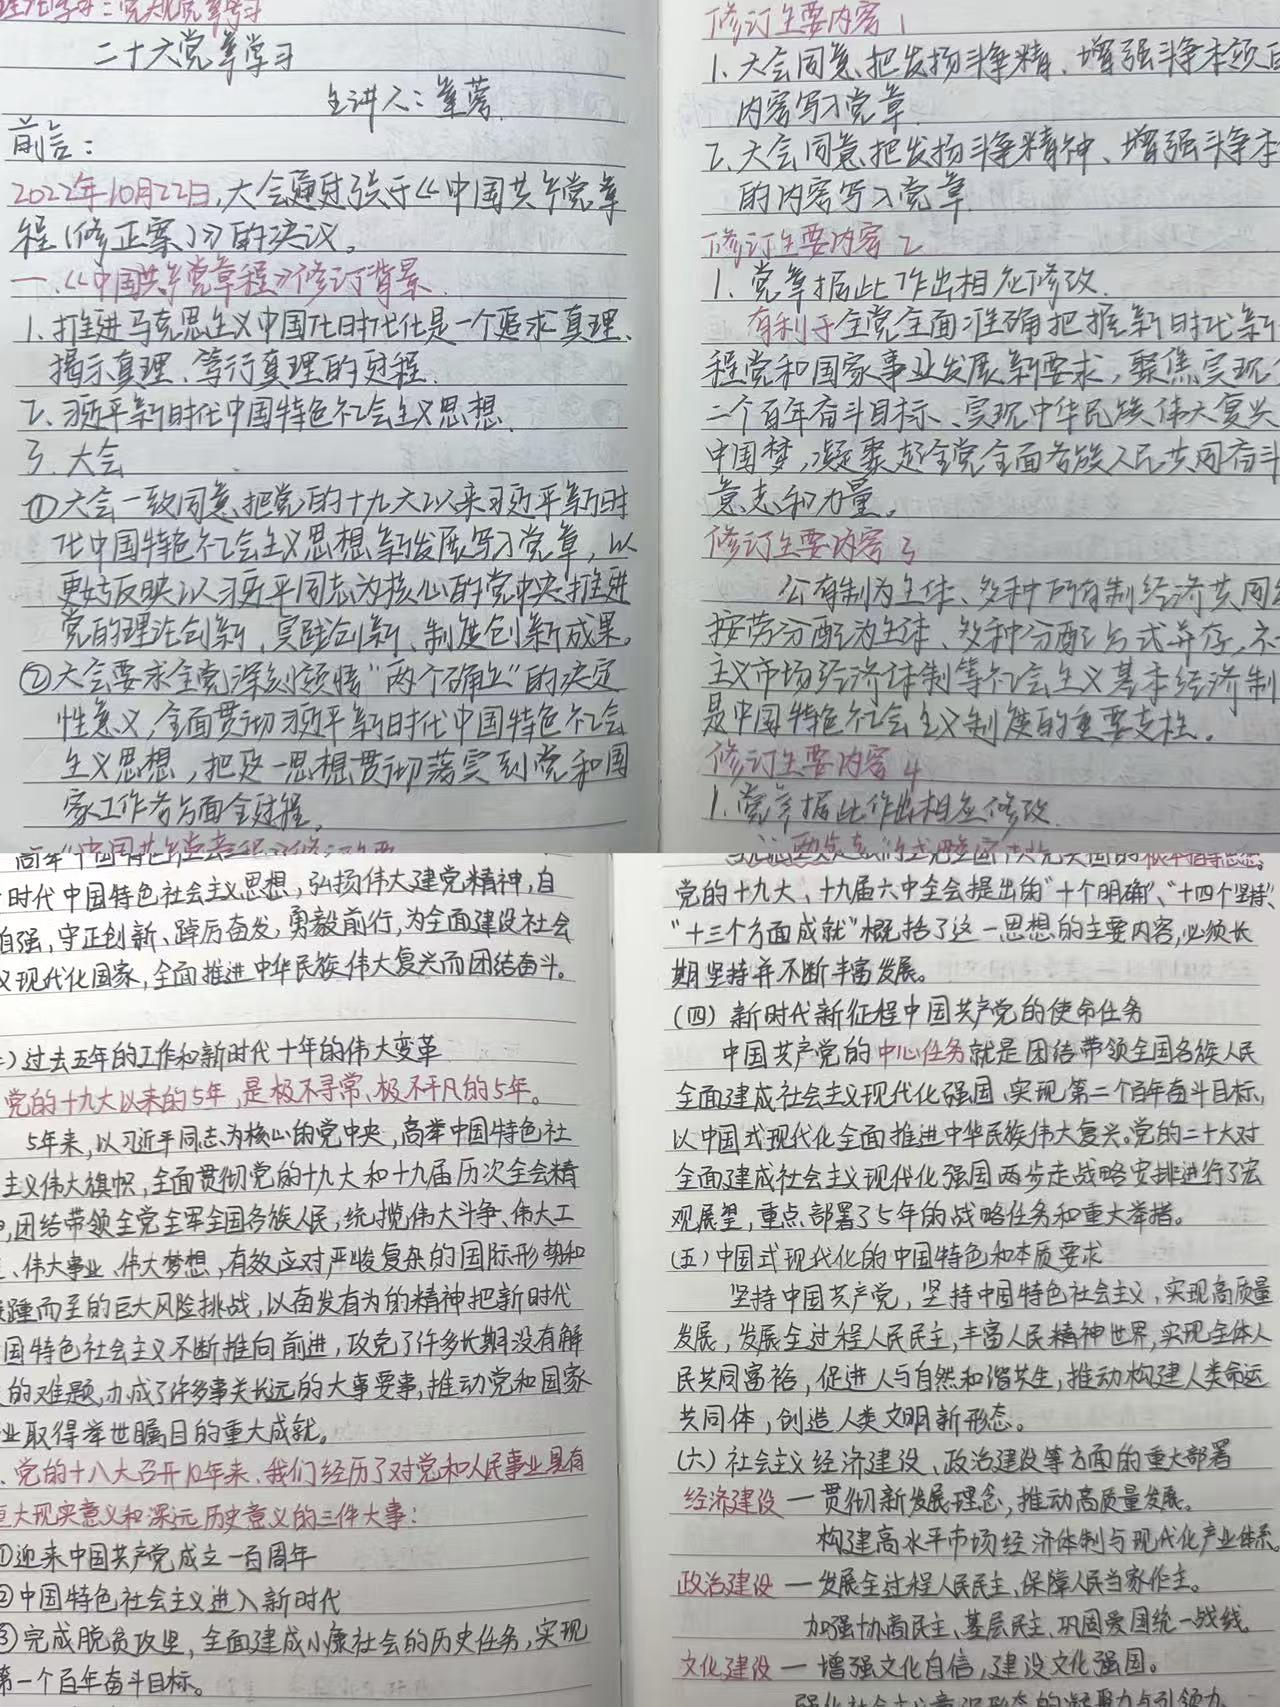 二十大党章学习
主讲人：
前言：
2022年10月22日,大会通过关于《中国共产党章
程（修正案）》的决议。
一.《中国共产党章程》修订背景.
1.推进马克思主义中国化时代化是一个追求真理、
揭示真理、笃行真理的过程.
2.习近平新时代中国特色社会主义思想.
3.大会
①大会一致同意,把党的十九大以来习近平新时
代中国特色社会主义思想新发展写入党章，以
更好反映以习近平同志为核心的党中央推进
党的理论创新，实践创新、制度创新成果。
②大会要求全党深刻领悟“两个确立”的决定
性意义，全面贯彻习近平新时代中国特色社会
主义思想，把这一思想贯彻落实到党和国
家工作各方面全过程。
修订主要内容1
1.大会同意,把发扬斗争精、增强斗争本领
内容写入党章.
2.大会同意,把发扬斗争精神、增强斗争本
的内容写入党章.
修订主要内容2
1.党章据此作出相应修改.
有利于全党全面准确把握新时代新
程党和国家事业发展新要求，聚焦实现
二个百年奋斗目标、实现中华民族伟大复兴
中国梦，凝聚起全党全面各族人民共同奋斗
意志和力量。
修订主要内容3
公有制为主体、多种所有制经济共同
按劳分配为主体、多种分配方式并存，
主义市场经济体制等社会主义基本经济制
是中国特色社会主义制度的重要支柱。
修订主要内容4
1.党章据此作出相应修改.
时代中国特色社会主义思想，弘扬伟大建党精神，自
自强，守正创新、踔厉奋发，勇毅前行，为全面建设社会
义现代化国家，全面推进中华民族伟大复兴而团结奋斗。
）过去五年的工作和新时代十年的伟大变革
党的十九大以来的5年，是极不寻常、极不平凡的5年。
5年来，以习近平同志为核心的党中央，高举中国特色社
主义伟大旗帜，全面贯彻党的十九大和十九届历次全会精
，团结带领全党全军全国各族人民，统揽伟大斗争、伟大工
、伟大事业、伟大梦想，有效应对严峻复杂的国际形势和
踵而至的巨大风险挑战，以奋发有为的精神把新时代
国特色社会主义不断推向前进，攻克了许多长期没有解
的难题，办成了许多事关长远的大事要事，推动党和国家
业取得举世瞩目的重大成就。
、党的十八大召开10年来、我们经历了对党和人民事业具有
重大现实意义和深远历史意义的三件大事：
①迎来中国共产党成立一百周年
②中国特色社会主义进入新时代
③完成脱贫攻坚，全面建成小康社会的历史任务，实现
第一个百年奋斗目标。
党的十九大、十九届六中全会提出的“十个明确”、“十四个坚持”、
“十三个方面成就”概括了这一思想的主要内容，必须长
期坚持并不断丰富发展。
（四）新时代新征程中国共产党的使命任务
中国共产党的中心任务就是团结带领全国各族人民
全面建成社会主义现代化强国、实现第二个百年奋斗目标，
以中国式现代化全面推进中华民族伟大复兴。党的二十大对
全面建成社会主义现代化强国两步走战略安排进行了宏
观展望，重点部署了5年的战略任务和重大举措。
（五）中国式现代化的中国特色和本质要求
坚持中国共产党，坚持中国特色社会主义，实现高质量
发展，发展全过程人民民主，丰富人民精神世界，实现全体人
民共同富裕，促进人与自然和谐共生，推动构建人类命运
共同体，创造人类文明新形态。
（六）社会主义经济建设、政治建设等方面的重大部署
经济建设 — 贯彻新发展理念，推动高质量发展。
构建高水平市场经济体制与现代化产业体系。
政治建设 — 发展全过程人民民主、保障人民当家作主。
加强协商民主、基层民主、巩固爱国统一战线。
文化建设 — 增强文化自信，建设文化强国。